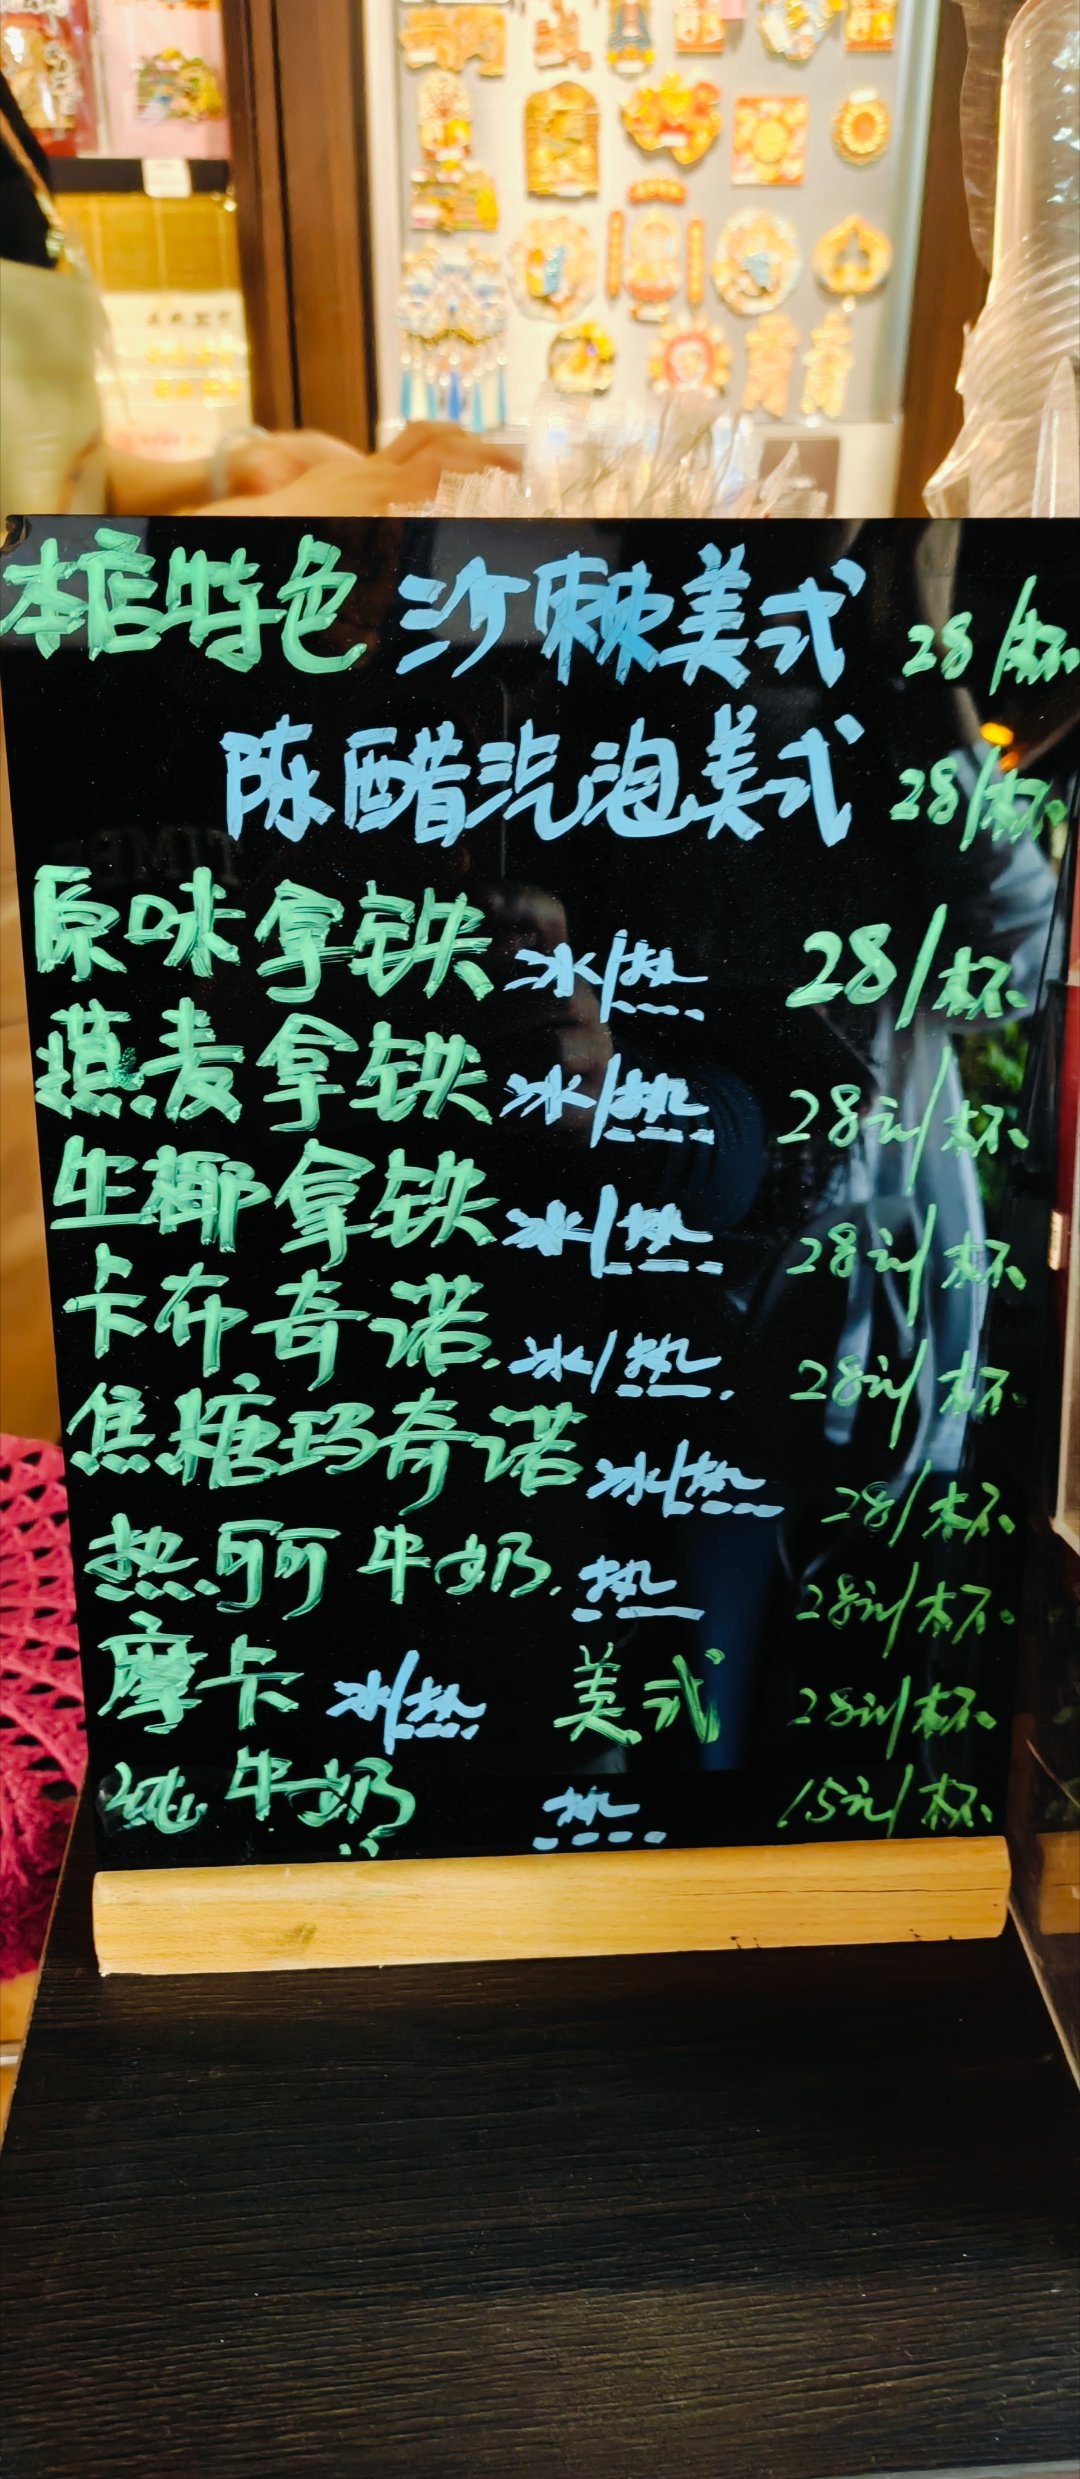 本店特色 沙棘美式 28/杯
陈醋汽泡美式 28/杯
原味拿铁 冰/热 28/杯
燕麦拿铁 冰/热 28元/杯
生椰拿铁 冰/热 28元/杯
卡布奇诺. 冰/热. 28元/杯
焦糖玛奇诺 冰/热 28/杯
热可可牛奶. 热 28元/杯
摩卡 冰/热 美式 28元/杯
纯牛奶 热 15元/杯